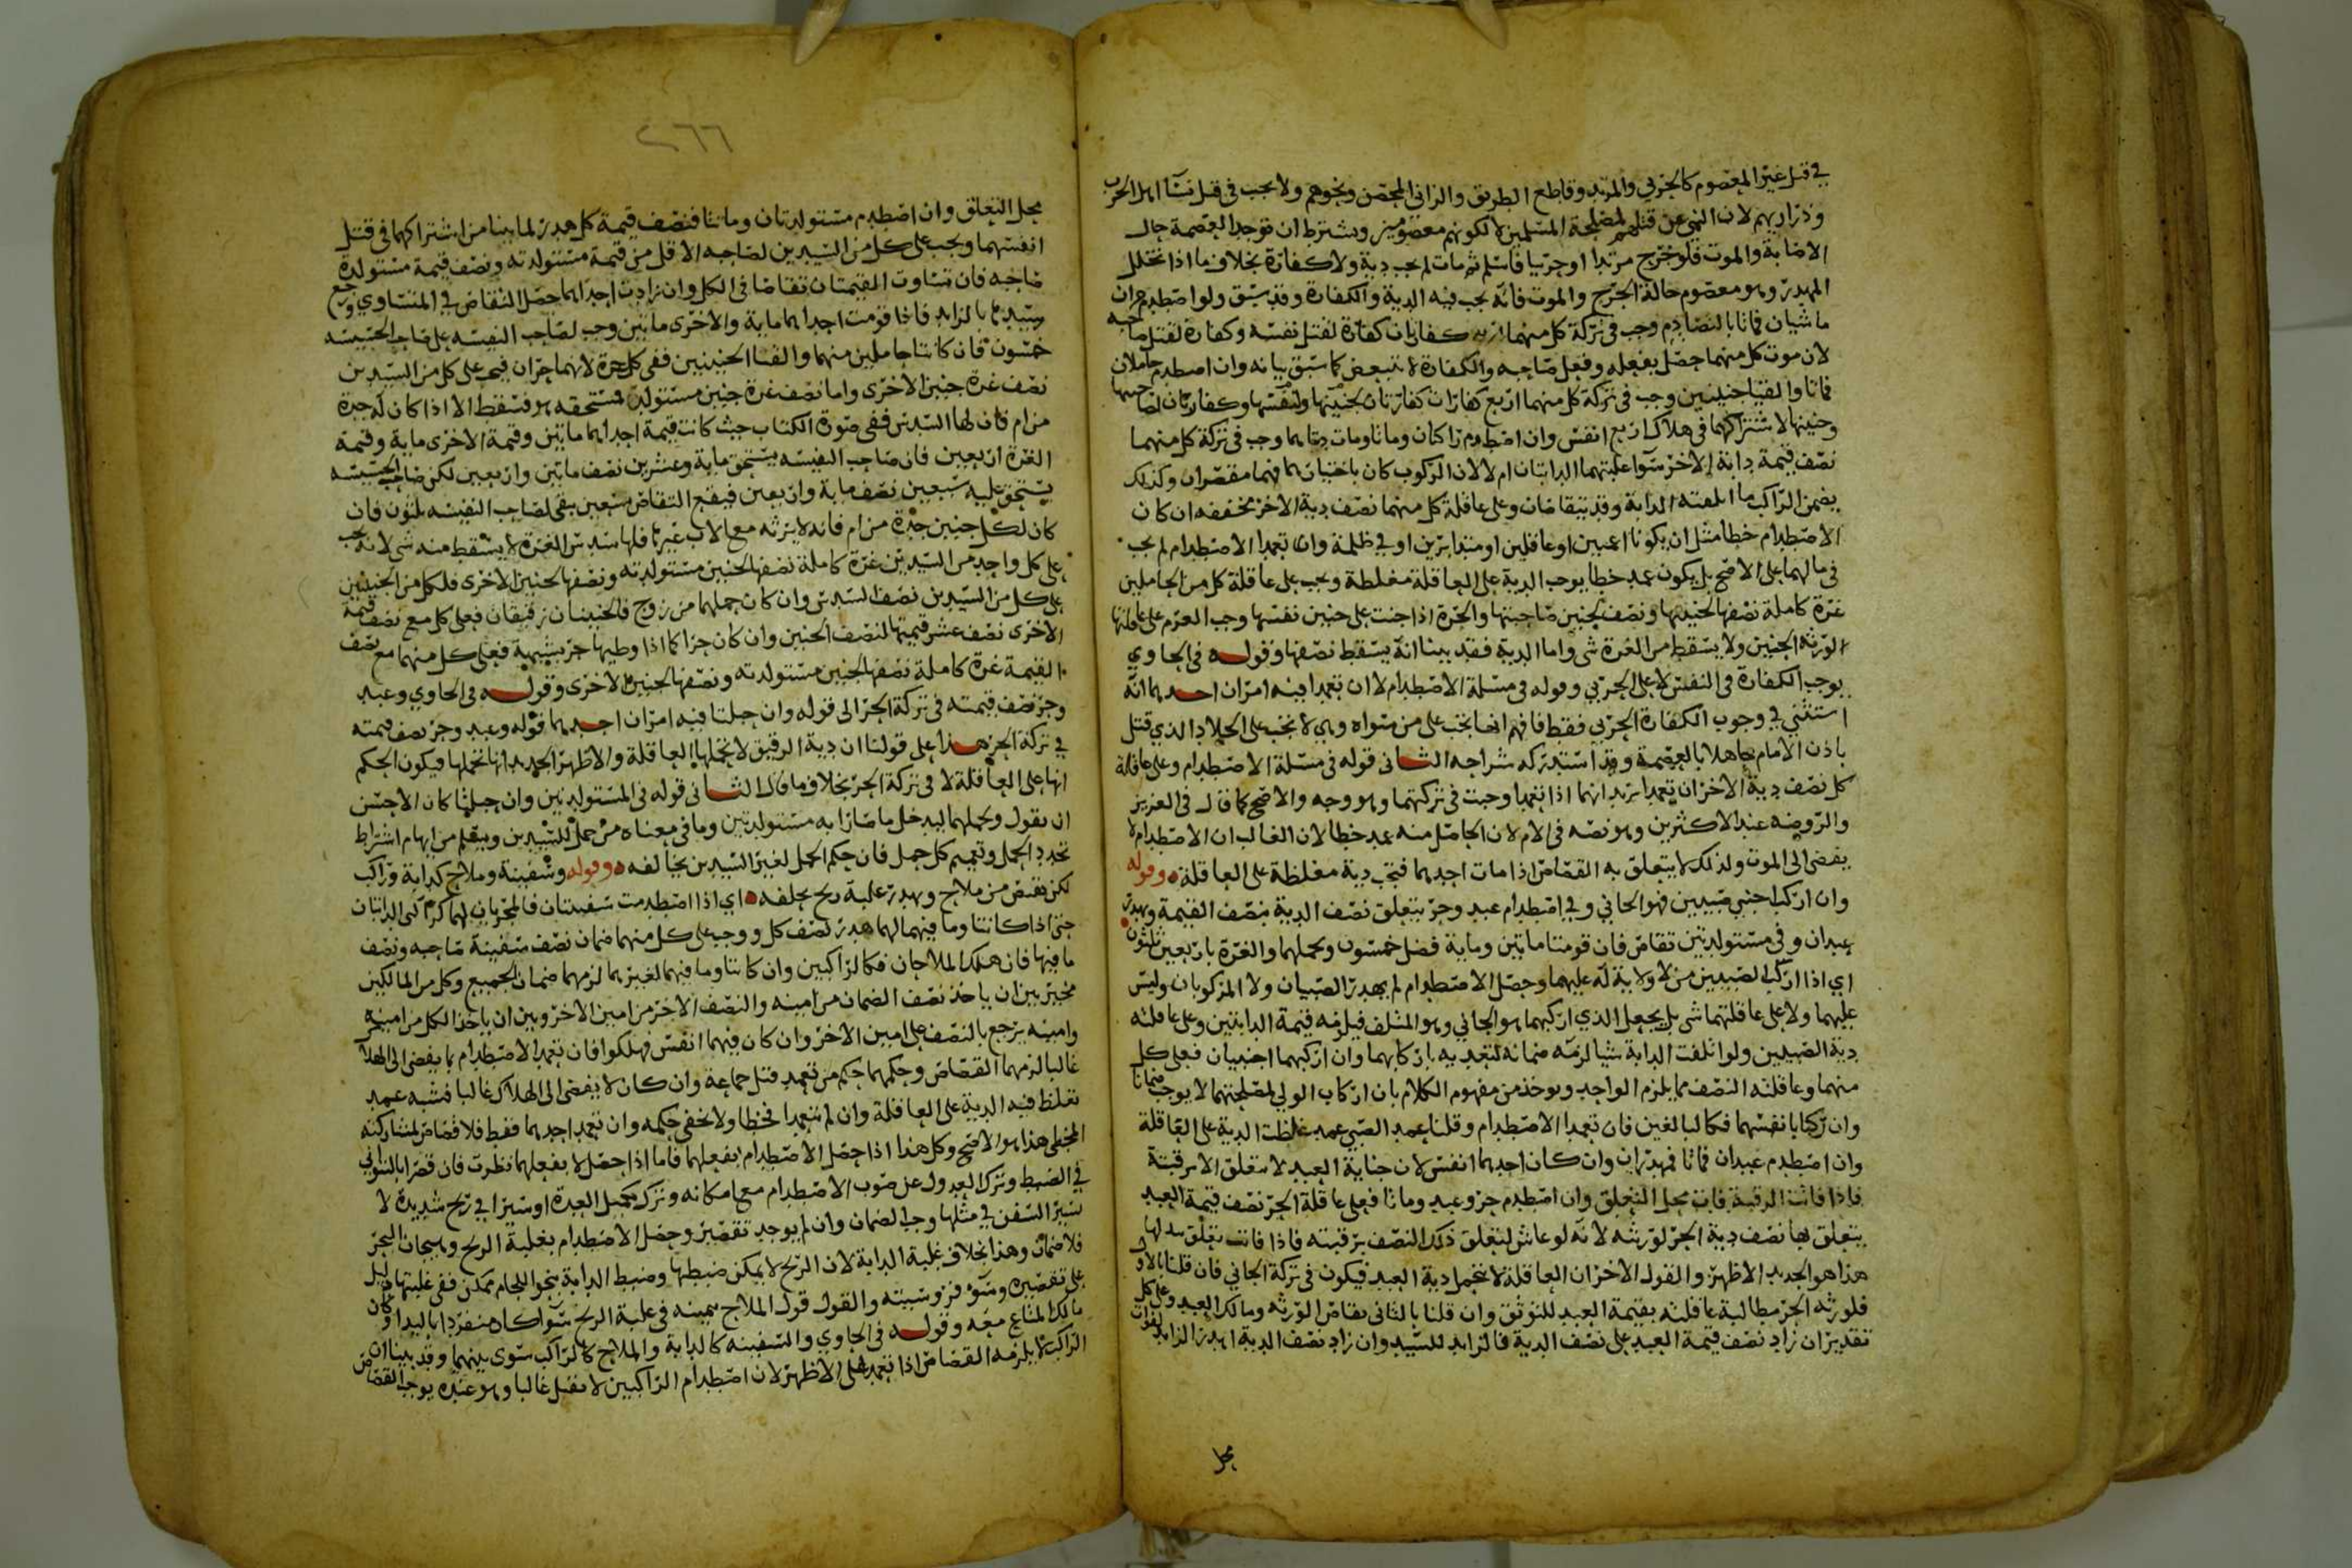 في قتل غير المعصوم كالحربي والمرتد وقاطع الطريق والزاني المحصن ونحوهم ولا يجب في قتل نسآ اهل الحرب
وذراريهم لان النهي عن قتلهم لمصلحة المسلمين لا لكونهم معصومين ويشترط ان توجد العصمة حال
الاصابة والموت فلو جرح مرتدا او حربيا فاسلم ثم مات لم يجب دية ولا كفارة بخلاف ما اذا تخلل
المهدر وهو معصوم حالة الجرح والموت فانه يجب فيه الدية والكفارة وقد سبق ولو اصطدم حران
ماشيان فماتا بالتصادم وجب في تركة كل منهما كفارتان كفارة لقتل نفسه وكفارة لقتل صاحبه
لان موت كل منهما حصل بفعله وفعل صاحبه والكفارة لا تتبعض كما سبق بيانه وان اصطدم حاملان
فماتا والقتا جنينين وجب في تركة كل منهما اربع كفارات كفارتان لجنينها ولنفسها وكفارتان لصاحبتها
وجنينها لاشتراكهما في هلاك اربع انفس وان اصطدم راكبان وماتا ومات دابتاهما وجب في تركة كل منهما
نصف قيمة دابة الاخر سوآ غلبتهما الدابتان ام لا لان الركوب كان باختيارهما فهما مقصران وكذلك
يضمن الراكب ما اتلفته الدابة وقد يتقاصان وعلى عاقلة كل منهما نصف دية الاخر مخففه ان كان
الاصطدام خطا مثل ان يكونا اعميين او غافلين او مدبرين او في ظلمة وان تعمدا الاصطدام لم يجب
في مالهما على الاصح بل يكون عمد خطا يوجب الدية على العاقلة مغلظة ويجب على عاقلة كل من الحاملين
غرة كاملة نصفها لجنينها ونصف لجنين صاحبتها والحرة اذا جنت على جنين نفسها وجب الغرم على عاقلتها
لورثه الجنين ولا يسقط من الغرة شي واما الدية فقد بينا انه يسقط نصفها وقوله في الحاوي
يوجب الكفارة في النفس لا على الحربي وقوله في مسئلة الاصطدام لا ان تعمدا فيه امران احدهما انه
استثني في وجوب الكفارة الحربي فقط فافهم انها تجب على من سواه وهي لا تجب على الجلاد الذي قتل
باذن الامام جاهلا بالعصمة وقد استدركه شراحه الثاني قوله في مسئلة الاصطدام وعلى عاقلة
كل نصف دية الاخر ان تعمدا يريد انهما اذا تعمدا وجبت في تركتهما وهو وجه والاصح كما قال في العزيز
والروضه عند الاكثرين وهو نصه في الام لان الحاصل منه عمد خطا لان الغالب ان الاصطدام لا
يفضي الى الموت ولذلك لا يتعلق به القصاص اذا مات احدهما فتجب دية مغلظة على العاقلة وقوله
وان اركب اجنبي صبيين فهو الجاني وفي اصطدام عبد وحر يتعلق نصف الدية بنصف القيمة وهدر
عبدان وفي مستولدتين تقاص فان قومتا مائتين وماية فضل خمسون وبحملهما والغرة باربعين ثلثون
اي اذا اركب الصبيين من لا ولاية له عليهما وحصل الاصطدام لم يهدر الصبيان ولا المركوبان وليس
عليهما ولا على عاقلتهما شي بل يجعل الذي اركبهما هو الجاني وهو المتلف فيلزمه قيمة الدابتين وعلى عاقلته
دية الصبيين ولو اتلفت الدابة شيا لزمه ضمانه لتعديه باركابهما وان اركبهما اجنبيان فعلى كل
منهما وعاقلته النصف مما يلزم الواحد ويوخذ من مفهوم الكلام بان اركاب الولي لمصلحتهما لا يوجب ضمانا
وان ركبا بانفسهما فكالبالغين فان تعمدا الاصطدام وقلنا عمد الصبي عمد غلظت الدية على العاقلة
وان اصطدم عبدان فماتا فهدران وان كان احدهما انفس لان جناية العبد لا تتعلق الا برقبته
فاذا فاتت الرقبة فات محل التعلق وان اصطدم حر وعبد وماتا فعلى عاقلة الحر نصف قيمة العبد
يتعلق بها نصف دية الحر لورثته لانه لو عاش لتعلق ذلك النصف برقبته فاذا فاتت تعلق ببدلها
هذا هو الجديد الاظهر والقول الاخر ان العاقلة لا تتحمل دية العبد فيكون في تركة الجاني فان قلنا بالاول
فلورثه الحر مطالبة عاقلته بقيمة العبد للتوثق وان قلنا بالثاني تقاص الورثه ومالك العبد وعلى كل
تقدير ان زاد نصف قيمة العبد على نصف الدية فالزايد للسيد وان زاد نصف الدية اهدر الزايد لفوات
محل
٢٦٦
محل التعلق وان اصطدم مستولدتان وماتتا فنصف قيمة كل هدر لما بينا من اشتراكهما في قتل
انفسهما ويجب على كل من السيدين لصاحبه الاقل من قيمة مستولدته ونصف قيمة مستولدة
صاحبه فان تساوت القيمتان تقاصا في الكل وان زادت احداهما حصل التقاص في المتساوي ورجع
سيدها بالزايد فاذا قومت احداهما ماية والاخرى مائتين وجب لصاحب النفيسه على صاحب الخسيسه
خمسون فان كانتا حاملين منهما والقتا الجنينين ففي كل حرة لانهما حران فيجب على كل من السيدين
نصف غرة جنين الاخرى واما نصف غرة جنين مستولدته فمستحقه هو فسقط الا اذا كان له جدة
من ام فان لها السدس ففي صورة الكتاب حيث كانت قيمة احداهما مائتين وقيمة الاخرى ماية وقيمة
الغرة اربعين فان صاحب النفيسه يستحق ماية وعشرين نصف مائتين واربعين لكن صاحب الخسيسه
يستحق عليه سبعين نصف ماية واربعين فيقع التقاص بسبعين يبقى لصاحب النفيسه خمسون فان
كان لكل جنين جدة من ام فانه لا يرثه مع الاب غيرها فلها سدس الغرة لا يسقط منه شي لانه يجب
على كل واحد من السيدين غرة كاملة نصفها لجنين مستولدته ونصفها لجنين الاخرى فلكل من الجنينين
على كل من السيدين نصف السدس وان كان حملهما من زوج فالجنينان رقيقان فعلى كل مع نصف قيمة
الاخرى نصف عشر قيمتها لنصف الجنين وان كان حرا كما اذا وطيها حر بشبهة فعلى كل منهما مع نصف
القيمة غرة كاملة نصفها لجنين مستولدته ونصفها لجنين الاخرى وقوله في الحاوي وعبد
وحر فنصف قيمته في تركة الحر الى قوله وان حبلتا فيه امران احدهما قوله وعبد وحر نصف قيمته
في تركة الحر هذا على قولنا ان دية الرقيق لا تتحملها العاقلة والاظهر الجديد انها تتحملها فيكون الحكم
انها على العاقلة لا في تركة الحر بخلاف ما قال الثاني قوله في المستولدتين وان حبلتا كان الاحسن
ان يقول وبحملهما ليدخل ما صارا به مستولدتين وما في معناه من حمل للسيدين ويسلم من ايهام اشتراط
تجدد الحمل وتعميم كل حمل فان حكم الحمل لغير السيدين بخالفه وقوله وسفينة وملاح كدابة وراكب
لكن يقتص من ملاح ويهدر غلبة ريح بحلفه اي اذا اصطدمت سفينتان فالمجريان لهما كراكبي الدابتان
حتى اذا كانتا وما فيهما لهما هدر نصف كل ووجب على كل منهما ضمان نصف سفينة صاحبه ونصف
ما فيها فان هلك الملاحان فكالراكبين وان كانتا وما فيهما لغيرهما لزمهما ضمان الجميع وكل من المالكين
مخير بين ان ياخذ نصف الضمان من امينه والنصف الاخر من امين الاخر وبين ان ياخذ الكل من امينه
وامينه يرجع بالنصف على امين الاخر وان كان فيهما انفس فهلكوا فان تعمدا الاصطدام بما يفضي الى الهلاك
غالبا لزمهما القصاص وحكمهما حكم من تعمد قتل جماعة وان كان لا يفضي الى الهلاك غالبا فشبه عمد
تغلظ فيه الدية على العاقلة وان لم يتعمدا فخطا ولا يخفي حكمه وان تعمد احدهما فقط فلا قصاص لمشاركته
المخطي هذا هو الاصح وكل هذا اذا حصل الاصطدام بفعلهما فاما اذا حصل لا بفعلهما نظرت فان قصرا بالتواني
في الضبط وترك العدول عن صوب الاصطدام مع امكانه وترك تكميل العدة او سيرا في ريح شديدة لا
تسير السفن في مثلها وجب الضمان وان لم يوجد تقصير وحصل الاصطدام بغلبة الريح وهيجان البحر
فلا ضمان وهذا بخلاف غلبة الدابة لان الريح لا يمكن ضبطها وضبط الدابة بنحو اللجام ممكن ففي غلبتها دليل
على تقصيره وسوء فروسيته والقول قول الملاح بيمينه في غلبة الريح سوآ كان منفردا باليد او كان
مالك المتاع معه وقوله في الحاوي والسفينه كالدابة والملاح كالراكب سوى بينهما وقد بينا ان
الراكب لا يلزمه القصاص اذا تعمد على الاظهر لان اصطدام الراكبين لا يقتل غالبا وهو عنده يوجب القصاص